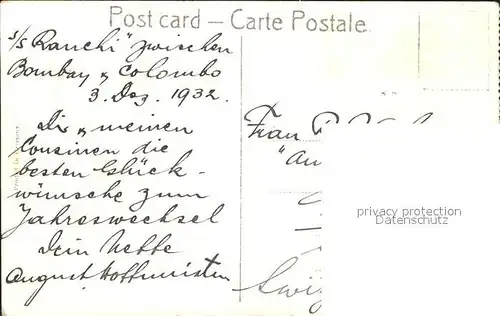 Post card – Carte Postale
s/s "Ranchi" zwischen
Bombay & Colombo
3. Dez. 1932.
Dir & meinen
Cousinen die
besten Glück-
wünsche zum
Jahreswechsel
Dein Neffe
August Hoffmeister
Frau
"Au
privacy protection
Datenschutz